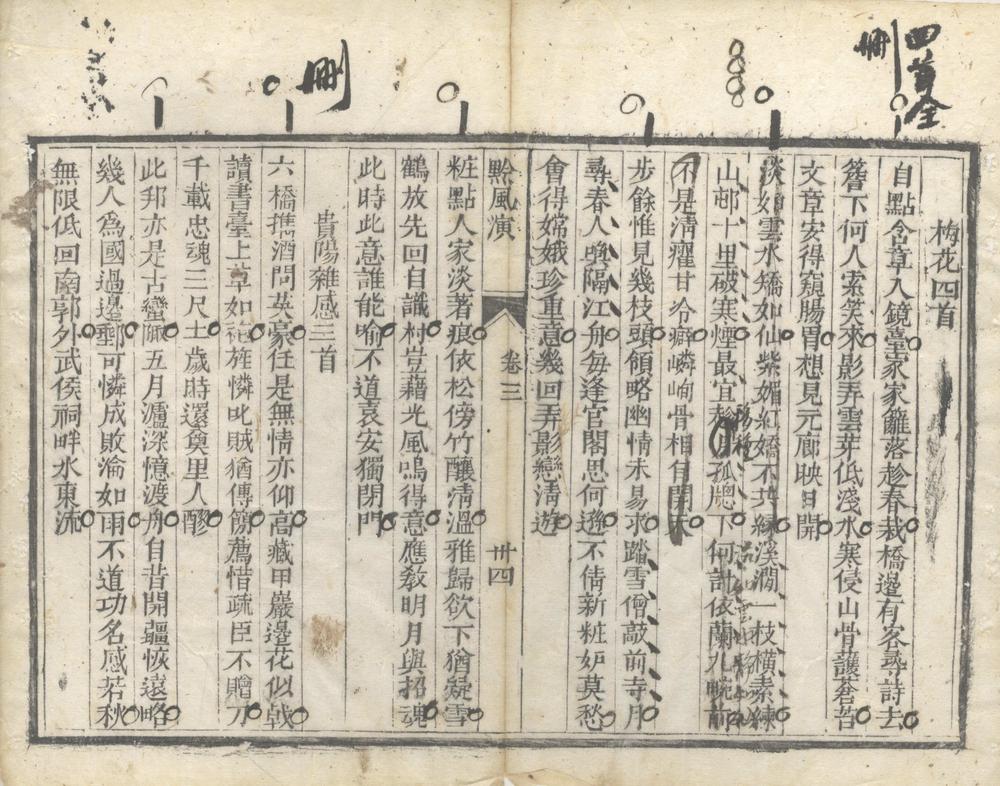 四首全
刪
梅花四首
自點含章入鏡臺家家籬落趁春栽橋邊有客尋詩去
簷下何人索笑來影弄雲芽低淺水寒侵山骨護蒼苔
文章安得窺腸胃想見元廊映日開
淡如雲水矯如仙紫媚紅嬌不共緣溪澗一枝橫素練
山邨十里破寒煙最宜月孤牕下何計依蘭九畹前
不是清癯甘冷癖嶙峋骨相自閒天
步餘惟見幾枝頭領略幽情未易求踏雪僧敲前寺月
尋春人喚隔江舟每逢官閣思何遜不倩新粧妒莫愁
會得嫦娥珍重意幾回弄影戀清遊
黔風演
卷三
卅四
刪
粧點人家淡著痕依松傍竹釀清溫雅歸欲下猶凝雪
鶴放先回自識村豈藉光風鳴得意應敎明月與招魂
此時此意誰能喻不道袁安獨閉門
貴陽雜感三首
六橋攜酒問英豪任是無情亦仰高藏甲巖邊花似戟
讀書臺上草如袍旌憐叱賊猶傳笏薦惜疏臣不贈刀
千載忠魂三尺土歲時還奠里人醪
此邦亦是古蠻陬五月瀘深憶渡舟自昔開疆恢遠略
幾人爲國過邊郵可憐成敗淪如雨不道功名感若秋
無限低回南郭外武侯祠畔水東流